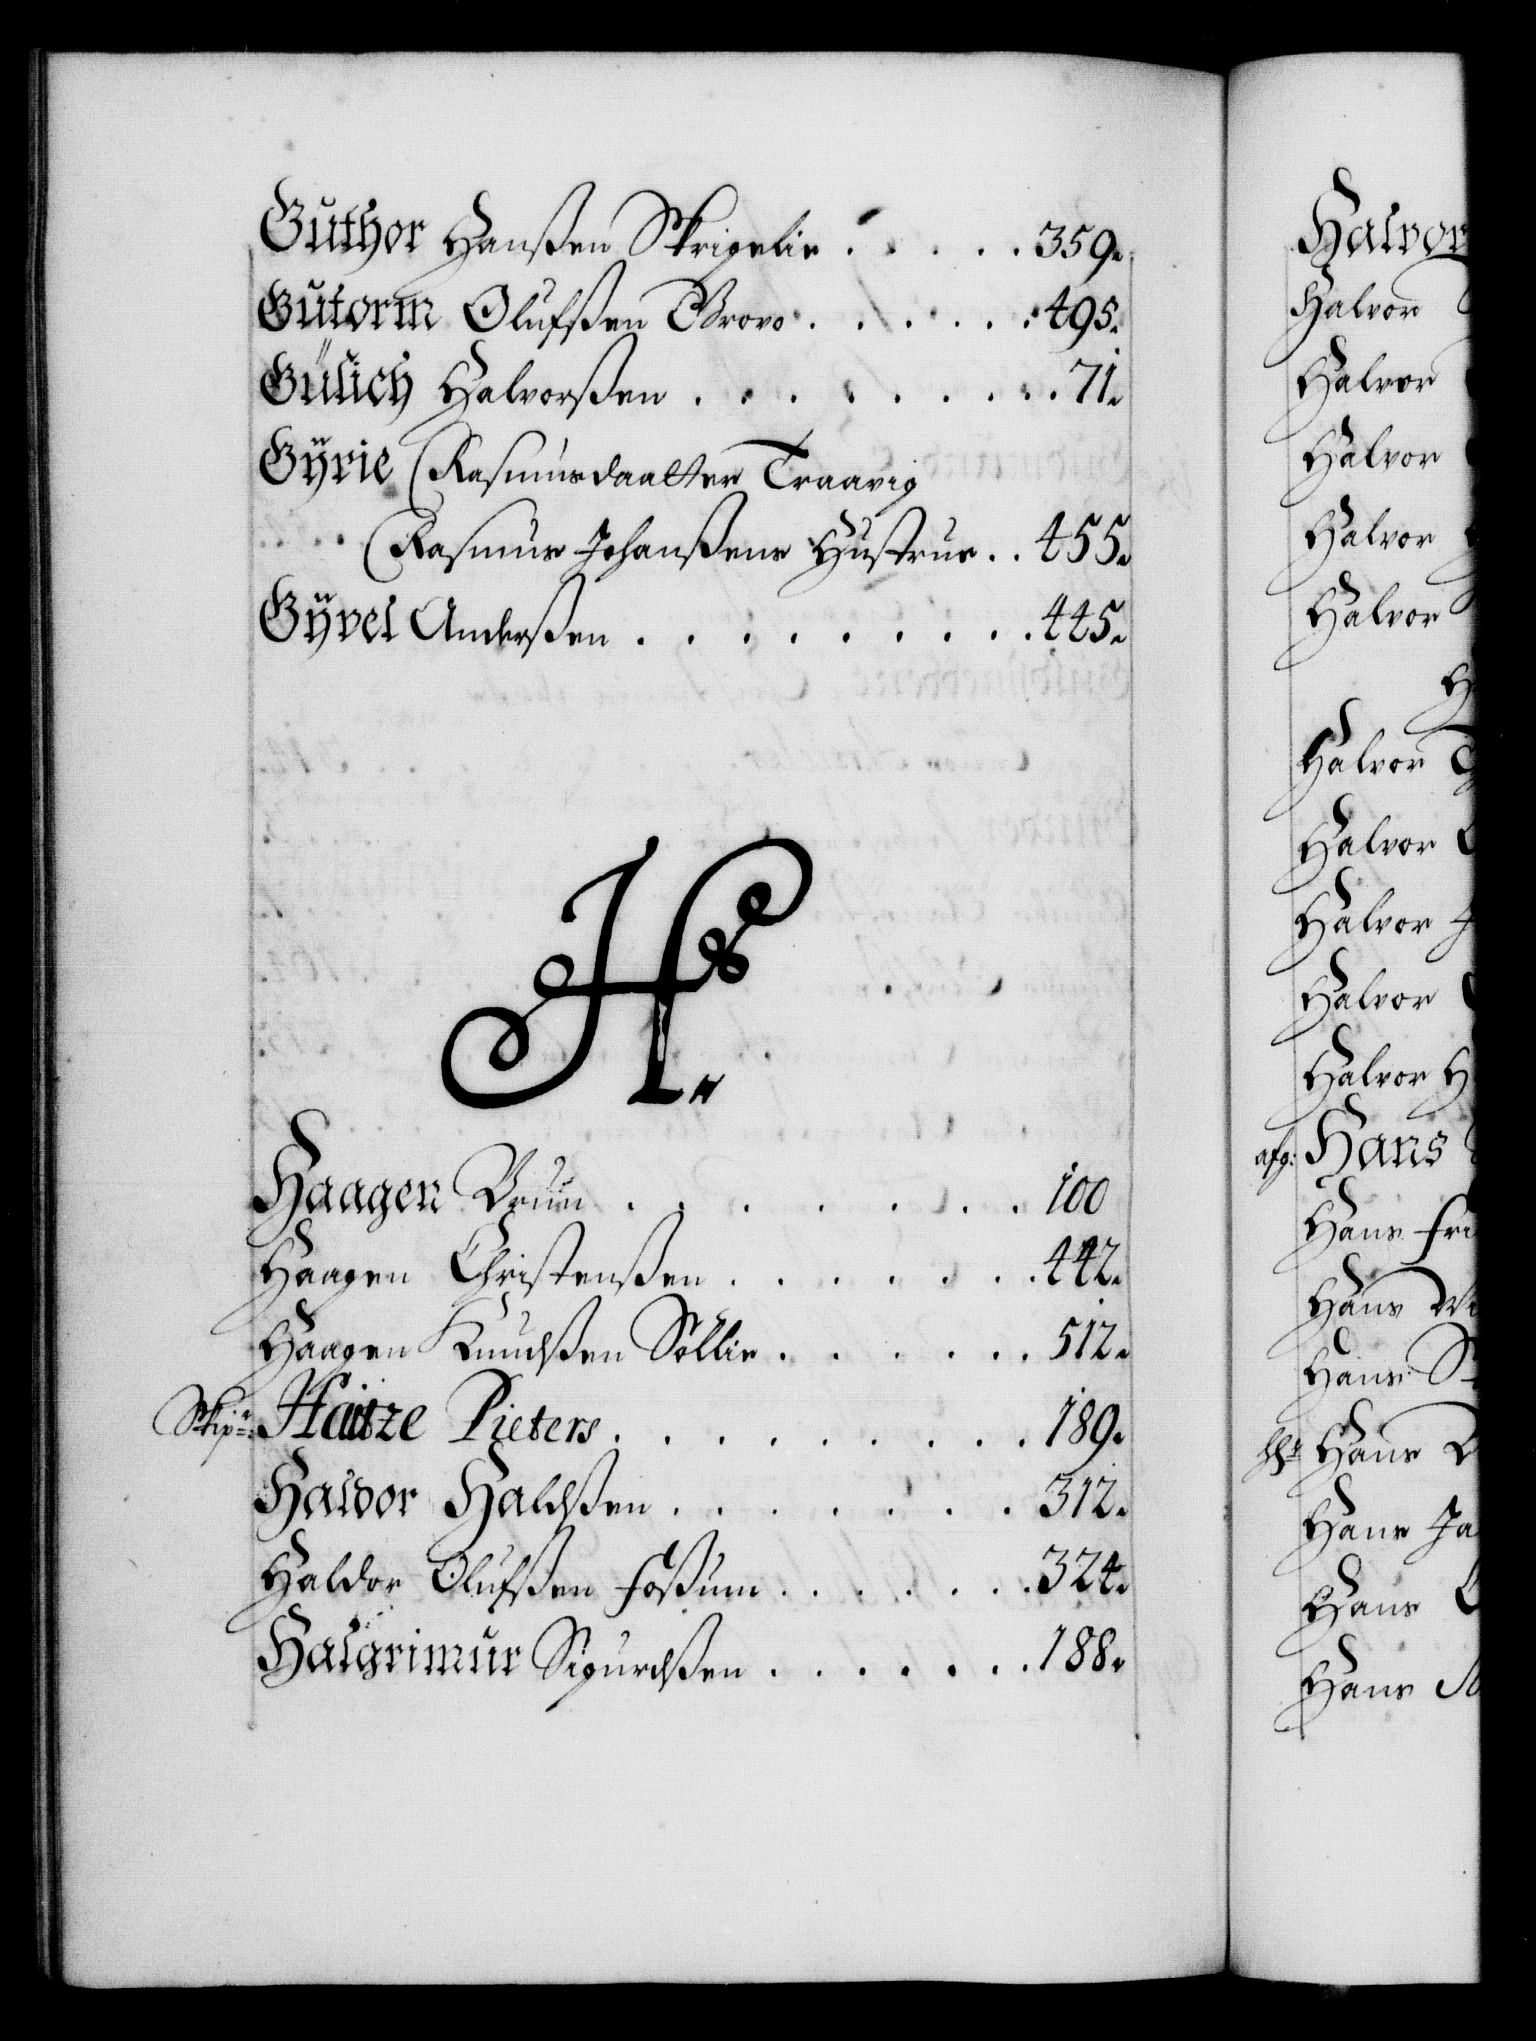 Guthor Hanßen Skrigelie . . . . . 359.
Gutorm Olufßen Grovo . . . . . . 495.
Gülich Halvorßen . . . . . . . . 71.
Gÿrie Rasmusdaatter Traavig
Rasmus Johanßens Hustrue . . 455.
Gÿvel Anderßen . . . . . . . . . 445.
H.
Haagen Bruun . . . . . . . . 100
Haagen Christenßen . . . . . . . 442.
Haagen Knudßen Sollie . . . . . . 512.
Skipr: Haitze Pieters . . . . . . . . . 189.
Haldor Haldßen . . . . . . . . 312.
Haldor Olufßen Foßum . . . . . . 324.
Halgrimur Sigurdßen . . . . . . . 188.
Halvor
Halvor
Halvor
Halvor
Halvor
Halvor
Halvor
Halvor
Halvor
Halvor
Halvor
afg: Hans
Hans Fri
Hans
Hans
Hr Hans
Hans Ja
Hans
Hans